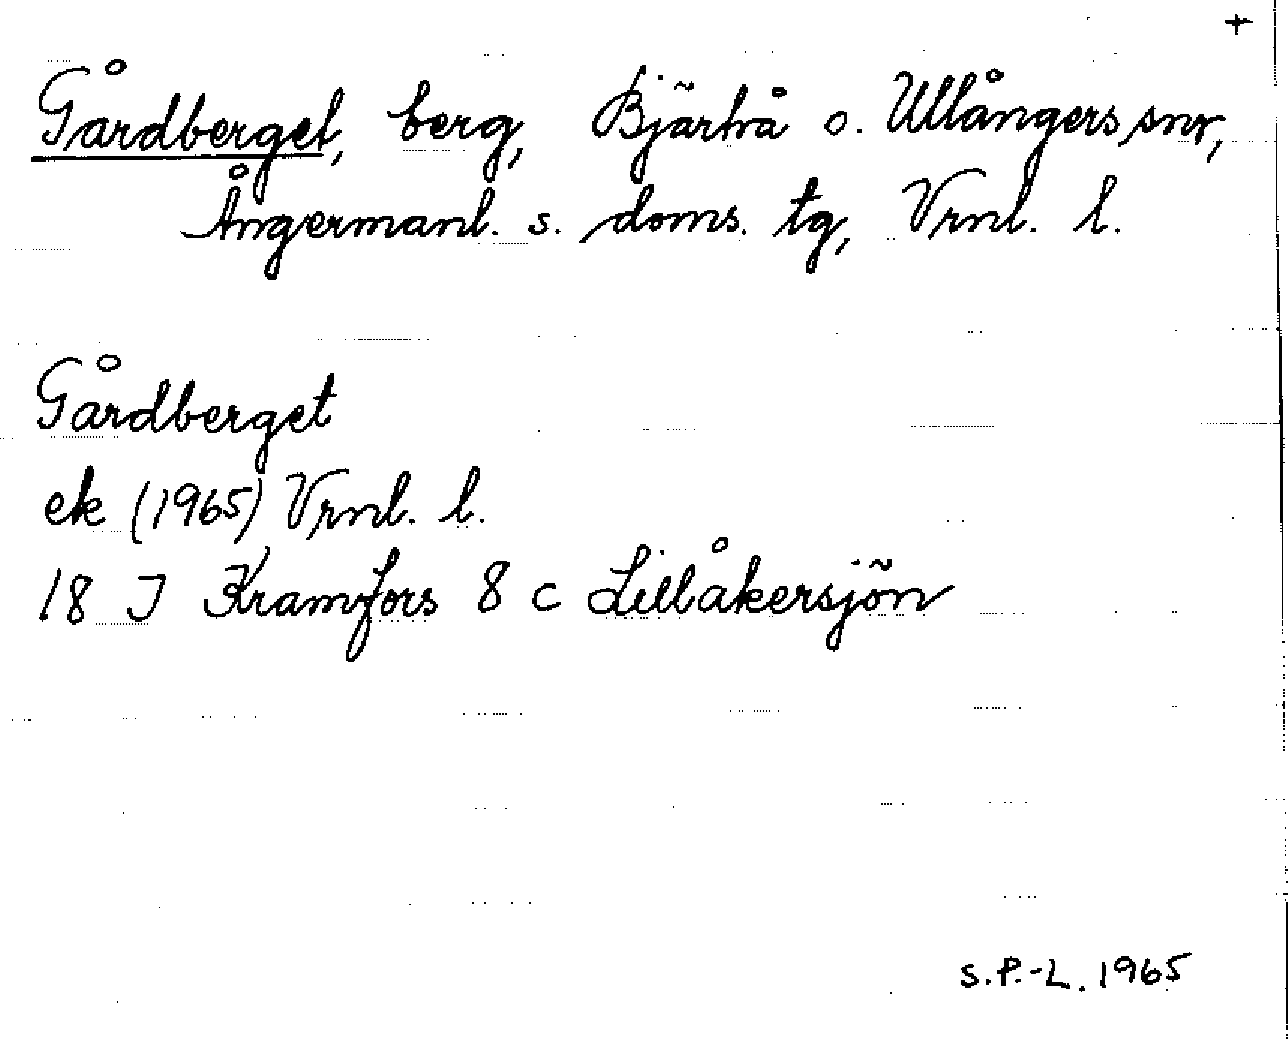 +
Gårdberget, berg, Bjärtrå o. Ullångers snr,
Ångermanl. s. doms. tg, Vrnl. l.
Gårdberget
ek (1965) Vrnl. l.
18 J Kramfors 8 c Lillåkersjön
S.P.-L. 1965